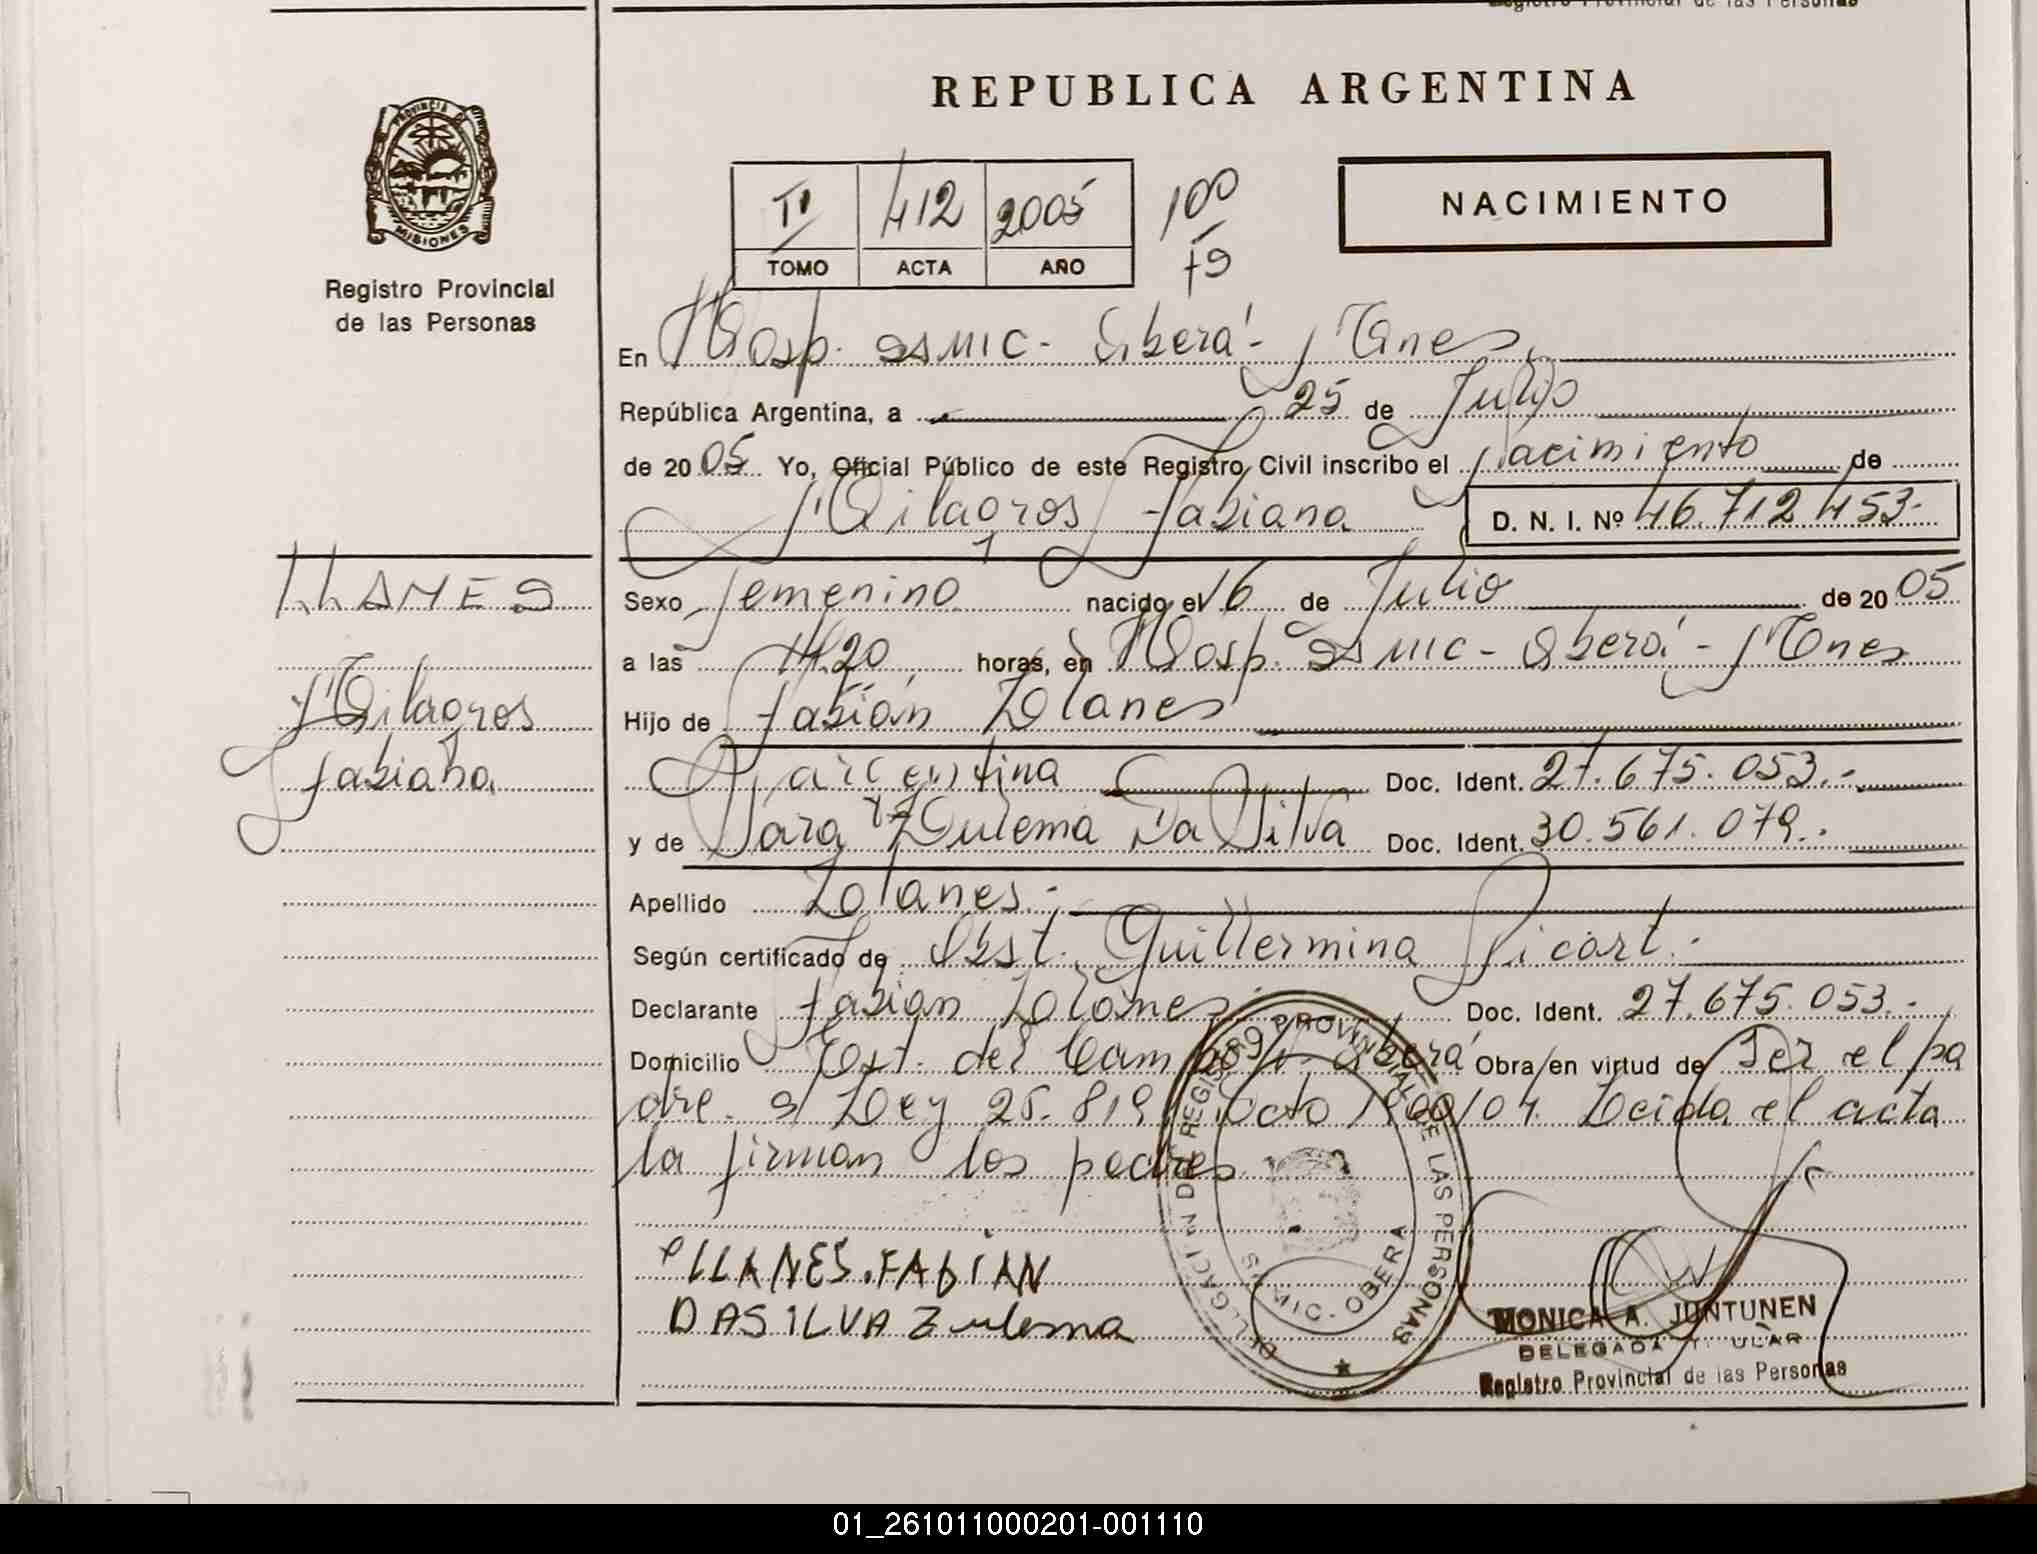 REPUBLICA ARGENTINA
PROVINCIA DE
MISIONES
Registro Provincial
de las Personas
412 2005 100
TOMO ACTA AÑO 79
NACIMIENTO
En Hosp. SAMIC - Oberá - Mnes
República Argentina, a 25 de Julio
de 2005 Yo, Oficial Público de este Registro Civil inscribo el Nacimiento de
Milagros Fabiana D. N. I. Nº 46.712.453.-
LLANES
Milagros
Fabiana
Sexo Femenino nacido el 16 de Julio de 2005
a las 14.20 horas, en Hosp. SAMIC - Oberá - Mnes
Hijo de Fabián Llanes
argentina Doc. Ident. 27.675.053.-
y de Sara Zulema Da Silva Doc. Ident. 30.561.079.-
Apellido Llanes.-
Según certificado de Obst. Guillermina Picart.-
Declarante Fabian Llanes Doc. Ident. 27.675.053.-
Domicilio Est. del Campo Oberá Obra en virtud de Ser el pa
dre. s/ Ley 25.819 Dcto 1900/04. Leida el acta
la firman los padres
LLANES.FABIAN
DASILVA Zulema
DELEGACION DEL REGISTRO PROVINCIAL DE LAS PERSONAS
OBERA
MONICA A. JUNTUNEN
DELEGADA TITULAR
Registro Provincial de las Personas
01_261011000201-001110